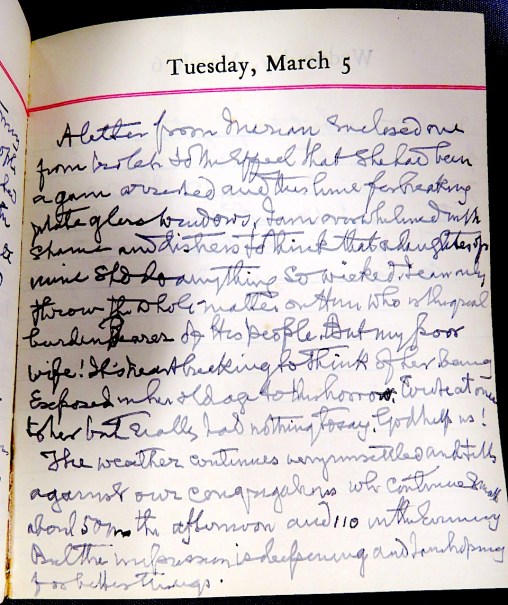 Tuesday, March 5
A letter from Marian enclosed one
from Violet to the effect that she had been
again arrested and this time for breaking
plate glass windows. I am overwhelmed with
shame and distress to think that a daughter of
mine shd do anything so wicked. I can only
throw the whole matter on Him Who is the great
burden bearer of His people. But my poor
wife! It is heartbreaking to think of her being
exposed in her old age to this horror. I wrote at once
to her but really had nothing to say. God help us!
The weather continues very unsettled and tells
against our congregations who continue small
about 50 in the afternoon and 110 in the Evening
But the impression is deepening and I am hoping
for better things.